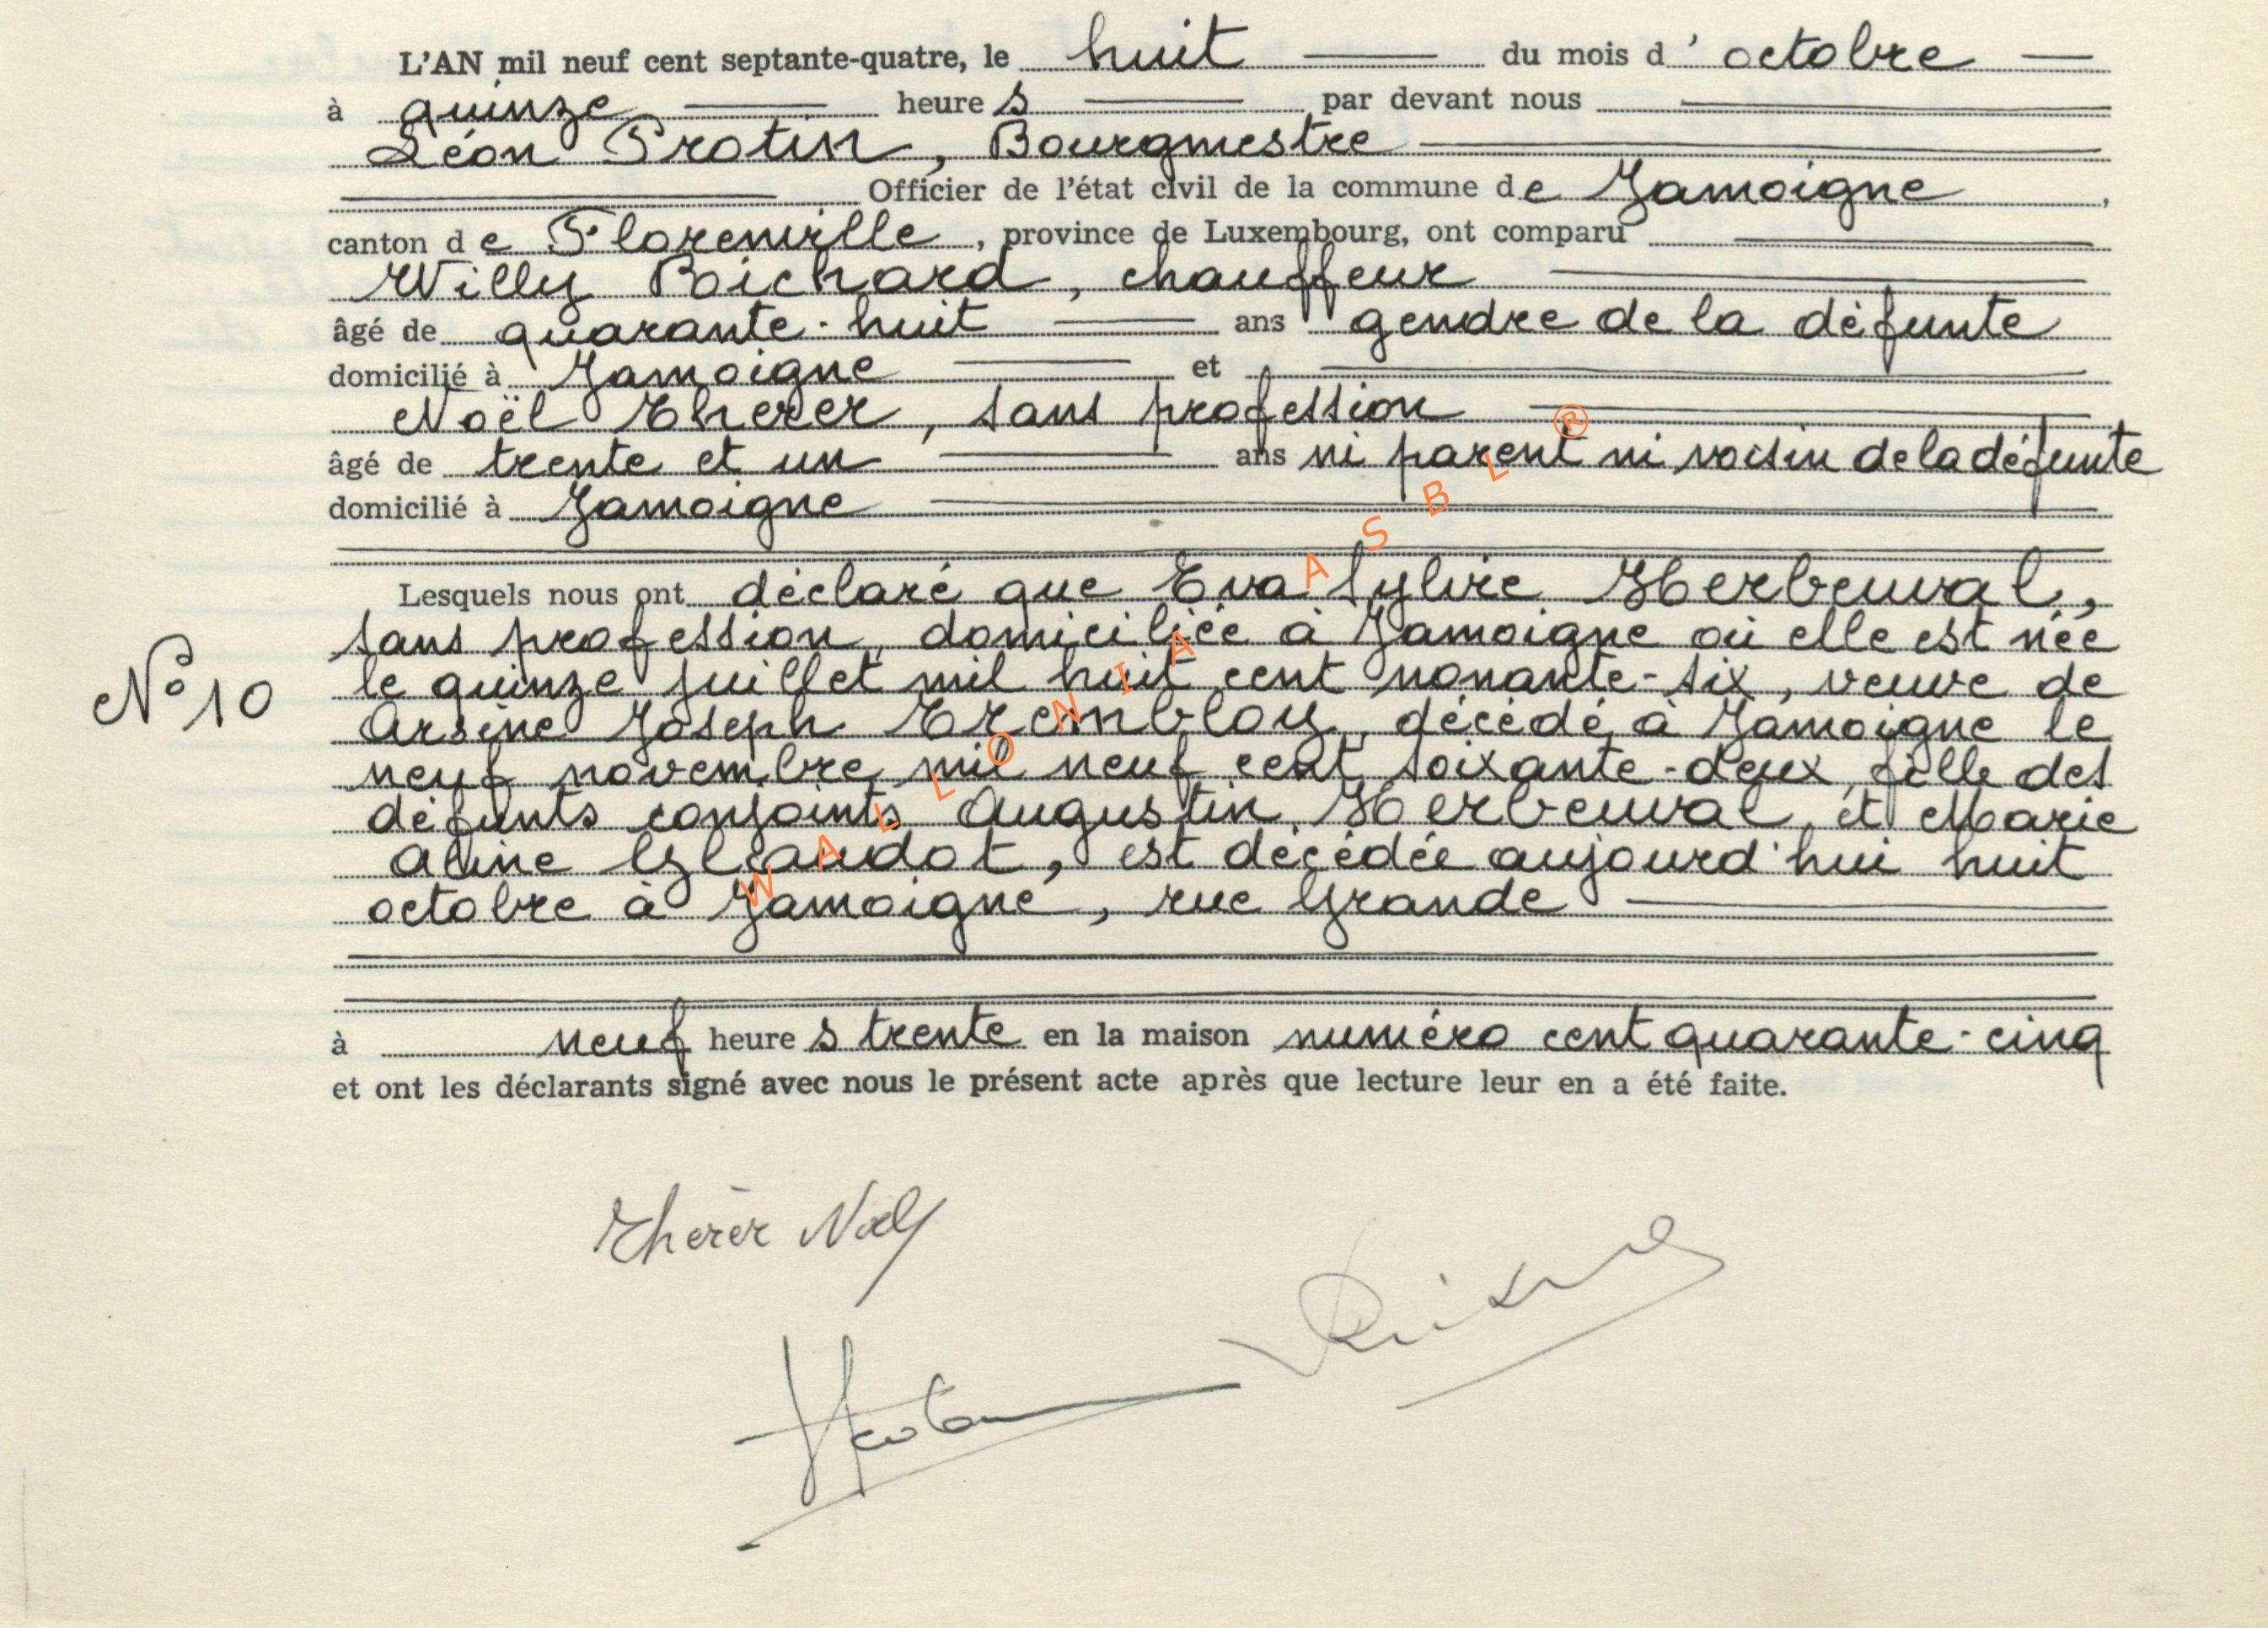 L'AN mil neuf cent septante-quatre, le huit du mois d'octobre
à quinze heures par devant nous
Léon Protin, Bourgmestre
Officier de l'état civil de la commune de Jamoigne,
canton de Florenville, province de Luxembourg, ont comparu
Willy Boichard, chauffeur
âgé de quarante-huit ans gendre de la défunte
domicilié à Jamoigne et
Noël Therer, sans profession
âgé de trente et un ans ni parent ni voisin de la défunte
domicilié à Jamoigne
Lesquels nous ont déclaré que Eva Sylvie Herbeuval,
sans profession, domiciliée à Jamoigne où elle est née
N° 10
le quinze juillet mil huit cent nonante-six, veuve de
Arsène Joseph Trembloy, décédé à Jamoigne le
neuf novembre mil neuf cent soixante-deux, fille des
défunts conjoints Augustin Herbeuval et Marie
Aline Glaudot, est décédée aujourd'hui huit
octobre à Jamoigne, rue Grande
à neuf heures trente en la maison numéro cent quarante-cinq
et ont les déclarants signé avec nous le présent acte après que lecture leur en a été faite.
Therer Noël
WALLONIA ASBL ®